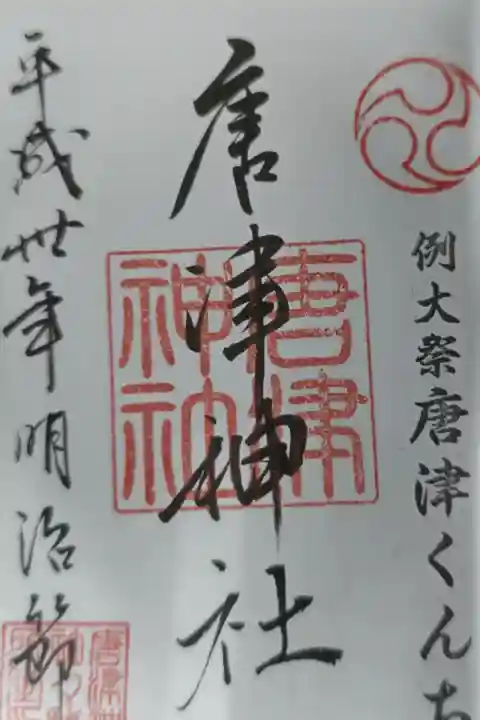 例大祭唐津くんち
唐津神社
唐津神社
平成卅年明治節